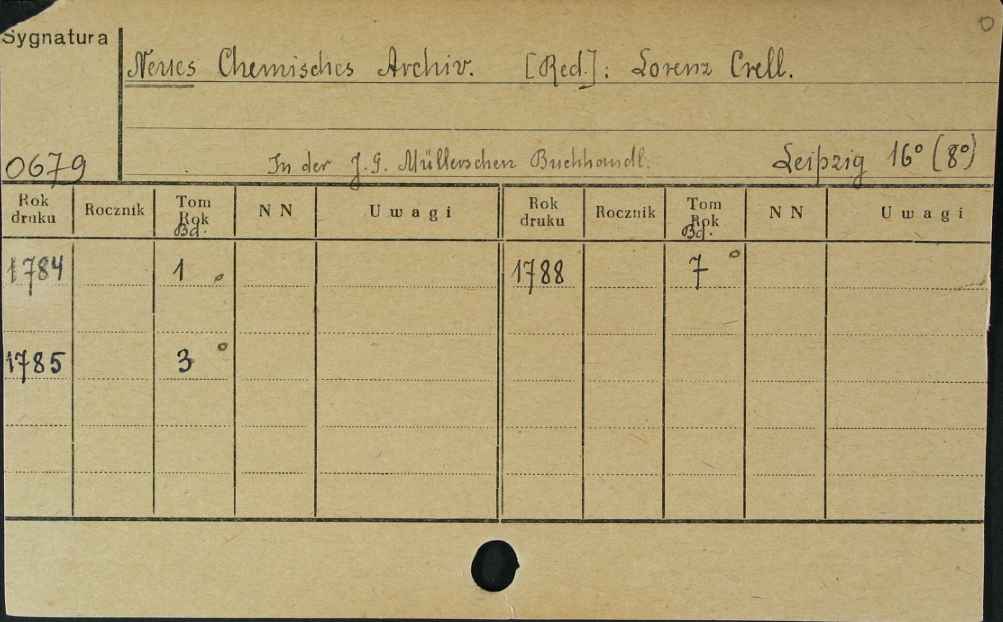 Sygnatura
Neues Chemisches Archiv. [Red.]: Lorenz Crell.
0679 In der J. G. Müllerschen Buchhandl. Leipzig 16° (8°)
Rok druku Rocznik Tom Rok Bd. N N Uwagi Rok druku Rocznik Tom Rok Bd. N N Uwagi
1784 1 1788 7
1785 3